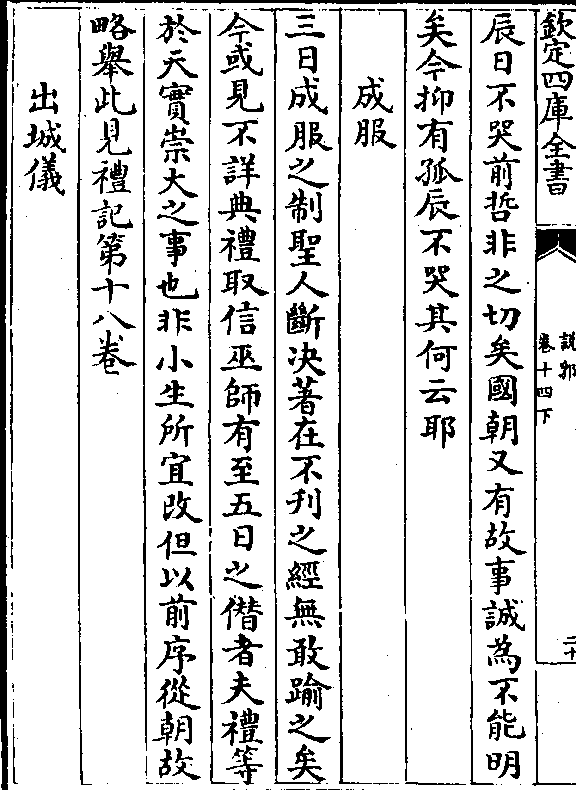 欽定四庫全書
說郛
卷十四下
二十
辰日不哭前哲非之切矣國朝又有故事誠為不能明
矣今抑有孤辰不哭其何云耶
成服
三日成服之制聖人斷決著在不刋之經無敢踰之矣
今或見不詳典禮取信巫師有至五日之僭者夫禮等
於天實崇大之事也非小生所宜改但以前序從朝故
略舉此見禮記第十八卷
出城儀